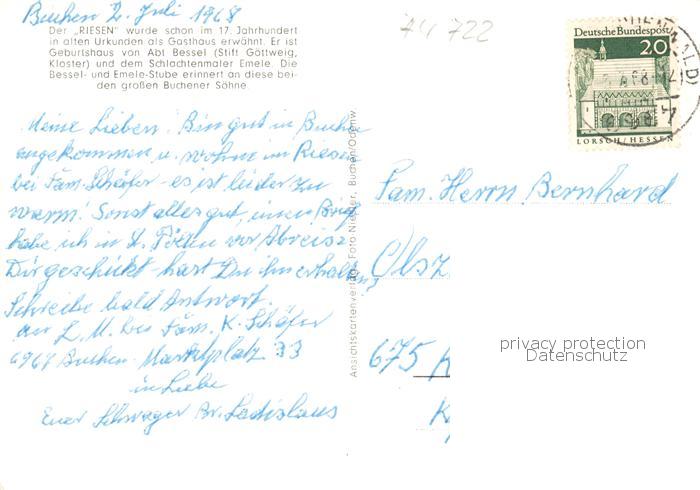 Buchen 2. Juli 1968
Der „RIESEN" wurde schon im 17. Jahrhundert
in alten Urkunden als Gasthaus erwähnt. Er ist
Geburtshaus von Abt Bessel (Stift Göttweig,
Kloster) und dem Schlachtenmaler Emele. Die
Bessel- und Emele-Stube erinnert an diese bei-
den großen Buchener Söhne.
Meine Lieben! Bin gut in Buchen
angekommen, u. wohne im Riesen
bei Fam. Schäfer - es ist leider zu
warm! Sonst alles gut, einen Brief
habe ich in St. Pölten vor Abreise
Dir geschickt hast Du ihn erhalten,
Schreibe bald Antwort.
an L. M. bei Fam. K. Schäfer
6967 Buchen Marktplatz 33
in Liebe
Euer Schwager Br. Ladislaus
Ansichtskartenverlag Foto Buchen/Odenw.
74 722
Deutsche Bundespost
20
LORSCH/HESSEN
Fam. Herrn Bernhard
Olsz
675 K
privacy protection
Datenschutz